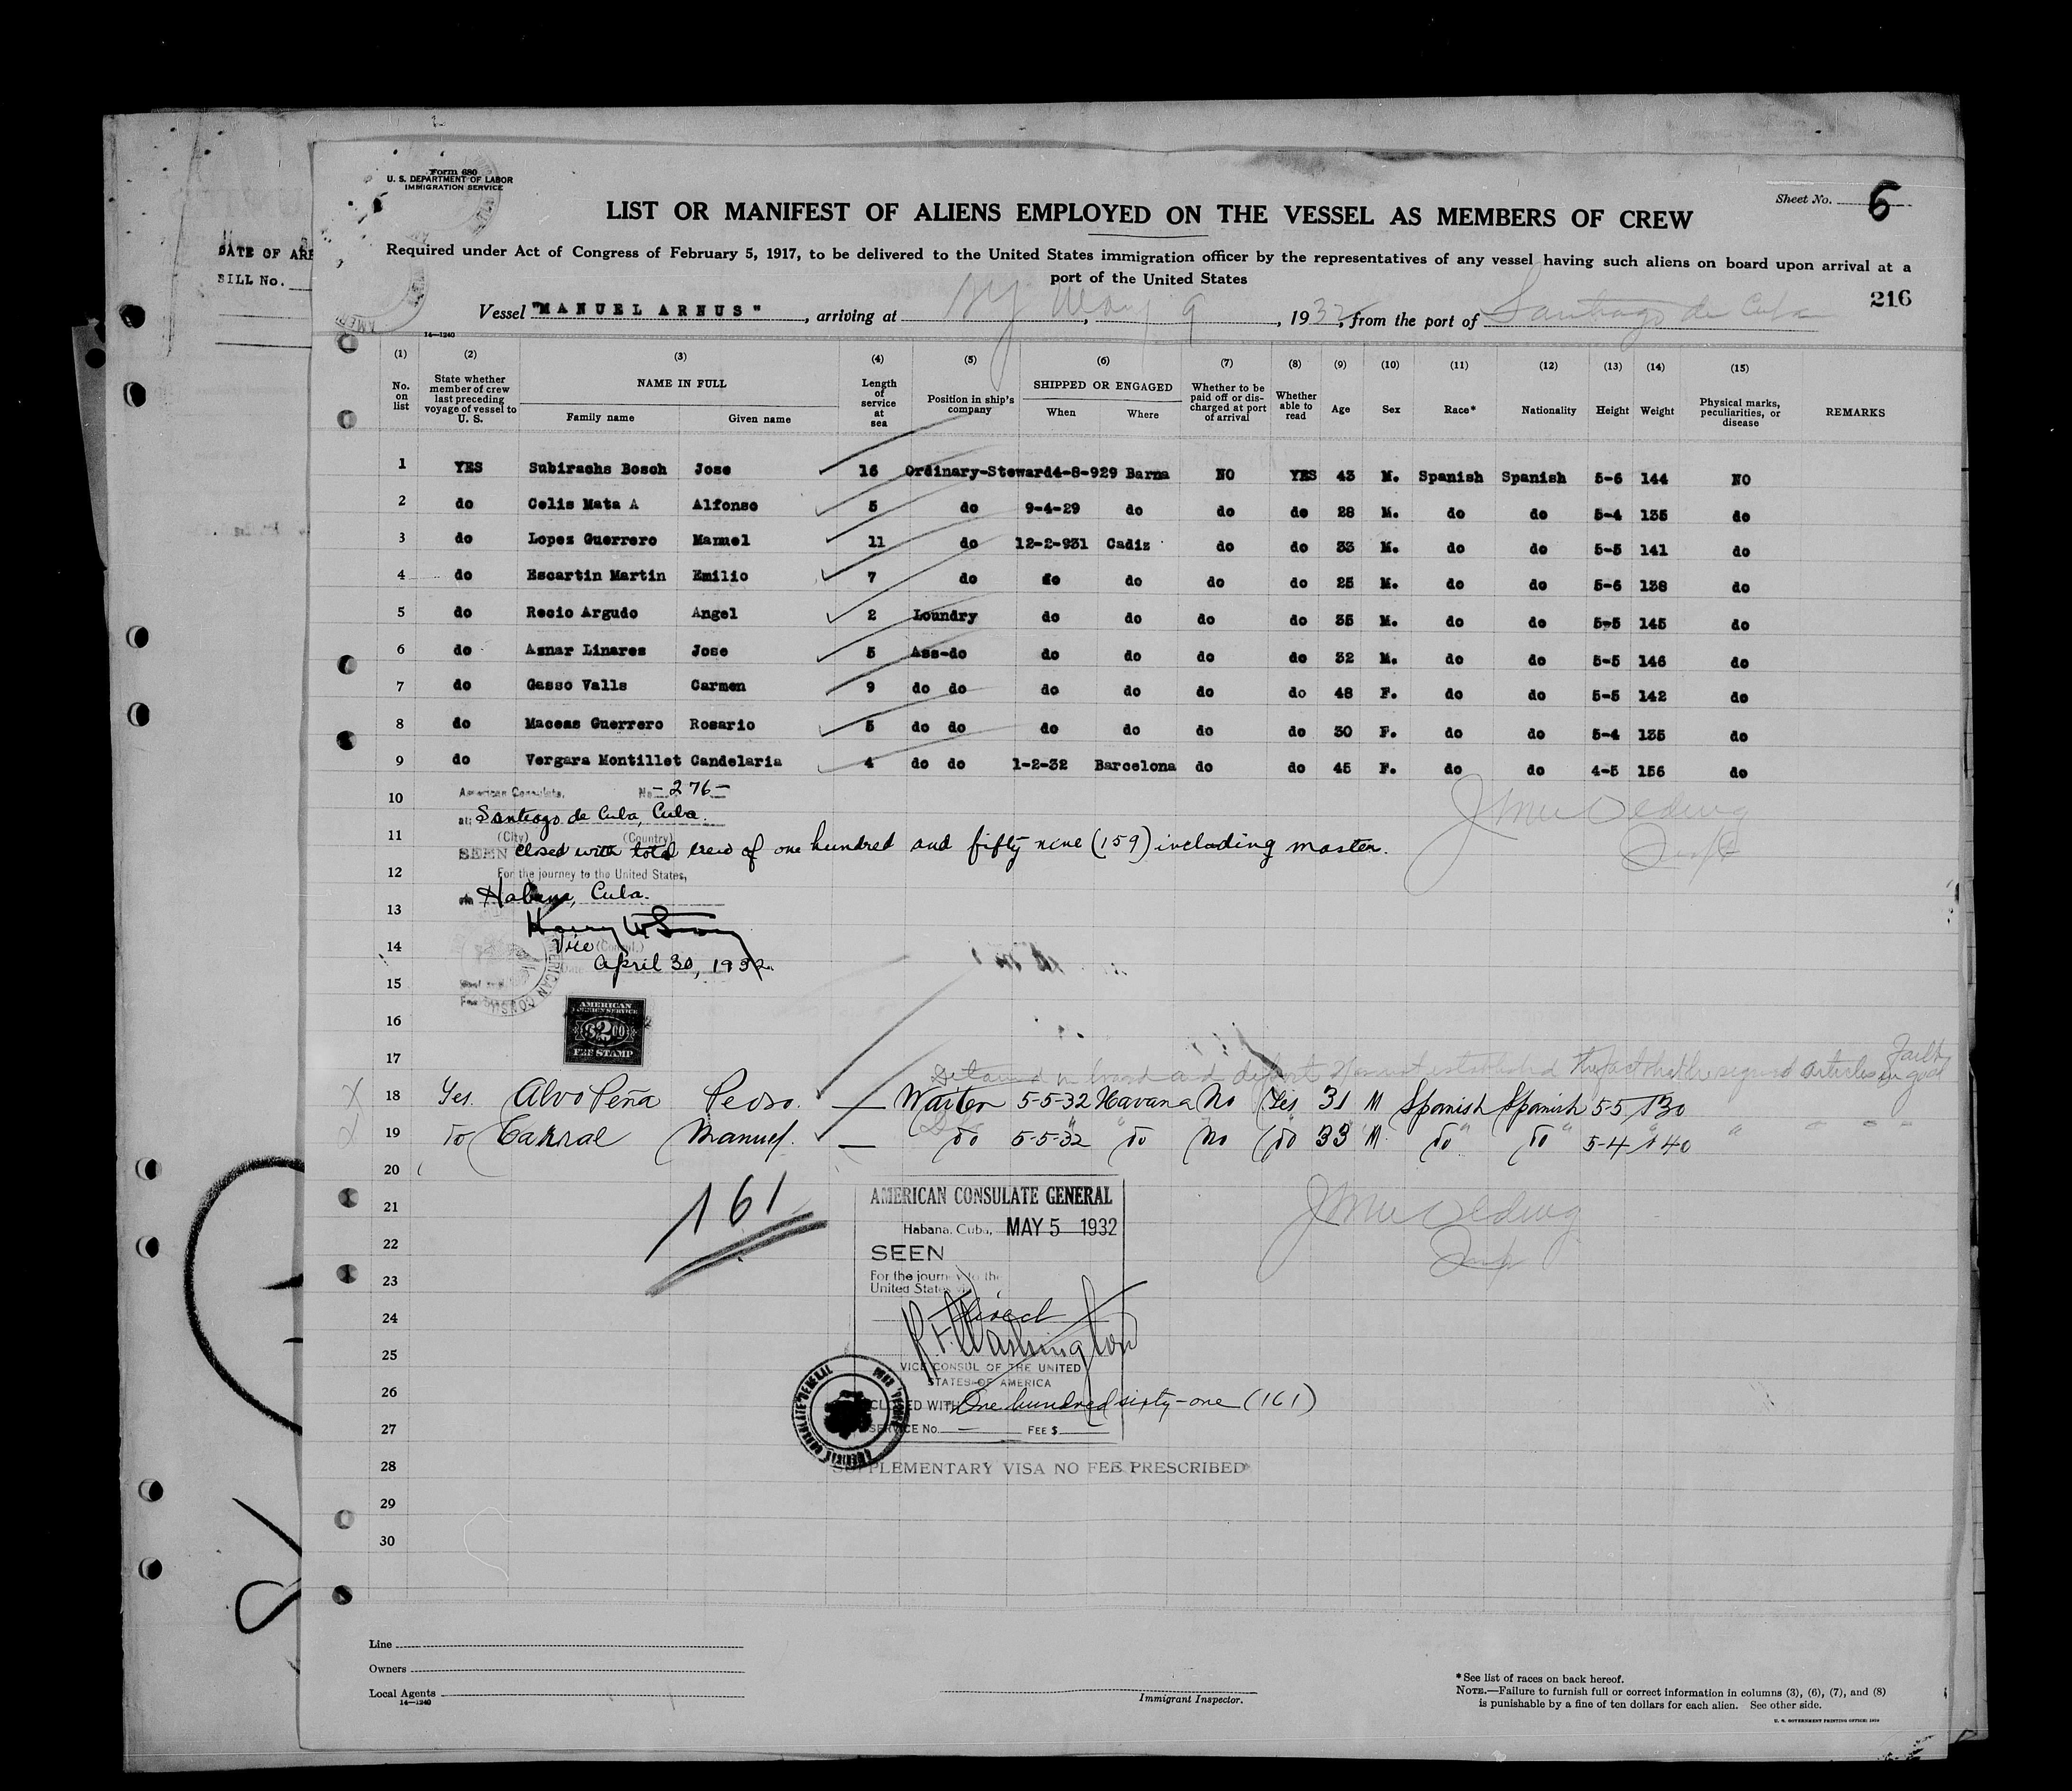 Form 680
U. S. DEPARTMENT OF LABOR
IMMIGRATION SERVICE
Sheet No. 6
LIST OR MANIFEST OF ALIENS EMPLOYED ON THE VESSEL AS MEMBERS OF CREW
Required under Act of Congress of February 5, 1917, to be delivered to the United States immigration officer by the representatives of any vessel having such aliens on board upon arrival at a
port of the United States
216
DATE OF ARR
BILL No.
Vessel "MANUEL ARNUS", arriving at NY May 9, 1932, from the port of Santiago de Cuba
14—1240
(1) (2) (3) (4) (5) (6) (7) (8) (9) (10) (11) (12) (13) (14) (15)
No. on list
State whether member of crew last preceding voyage of vessel to U. S.
NAME IN FULL
Family name Given name
Length of service at sea
Position in ship's company
SHIPPED OR ENGAGED
When Where
Whether to be paid off or discharged at port of arrival
Whether able to read
Age Sex Race* Nationality Height Weight
Physical marks, peculiarities, or disease
REMARKS
1 YES Subirachs Bosch Jose 16 Ordinary-Steward 4-8-929 Barna NO YES 43 M. Spanish Spanish 5-6 144 NO
2 do Celis Mata A Alfonso 5 do 9-4-29 do do do 28 M. do do 5-4 135 do
3 do Lopez Guerrero Manuel 11 do 12-2-931 Cadiz do do 33 M. do do 5-5 141 do
4 do Escartin Martin Emilio 7 do do do do do 25 M. do do 5-6 138 do
5 do Recio Argudo Angel 2 Loundry do do do do 35 M. do do 5-5 145 do
6 do Aznar Linares Jose 5 Ass-do do do do do 32 M. do do 5-5 146 do
7 do Gasso Valls Carmen 9 do do do do do do 48 F. do do 5-5 142 do
8 do Maceas Guerrero Rosario 5 do do do do do do 30 F. do do 5-4 135 do
9 do Vergara Montillet Candelaria 4 do do 1-2-32 Barcelona do do 45 F. do do 4-5 156 do
10 American Consulate, No -276-
at: Santiago de Cuba, Cuba.
11 (City) (Country)
SEEN closed with total crew of one hundred and fifty nine (159) including master.
12 For the journey to the United States,
via Habana, Cuba.
13
14 Vice (Consul.)
April 30, 1932.
15
AMERICAN
FOREIGN SERVICE
$2.00
FEE STAMP
16
17
Detained on board and deport
18 Yes. Alvo Peña Pedro. — Waiter 5-5-32 Havana No Yes 31 M Spanish Spanish 5-5 130
19 do Carral Manuel. — do 5-5-32 do No do 33 M. do do 5-4 140
20
161
AMERICAN CONSULATE GENERAL
21
Habana, Cuba, MAY 5 1932
22 SEEN
23 For the journey to the
United States via
24 Direct
25
VICE CONSUL OF THE UNITED
STATES OF AMERICA
26 CLOSED WITH One hundred sixty-one (161)
27 SERVICE No. — FEE $
28 SUPPLEMENTARY VISA NO FEE PRESCRIBED
29
30
Line
Owners
Local Agents
14—1240
Immigrant Inspector.
*See list of races on back hereof.
NOTE.—Failure to furnish full or correct information in columns (3), (6), (7), and (8)
is punishable by a fine of ten dollars for each alien. See other side.
U. S. GOVERNMENT PRINTING OFFICE